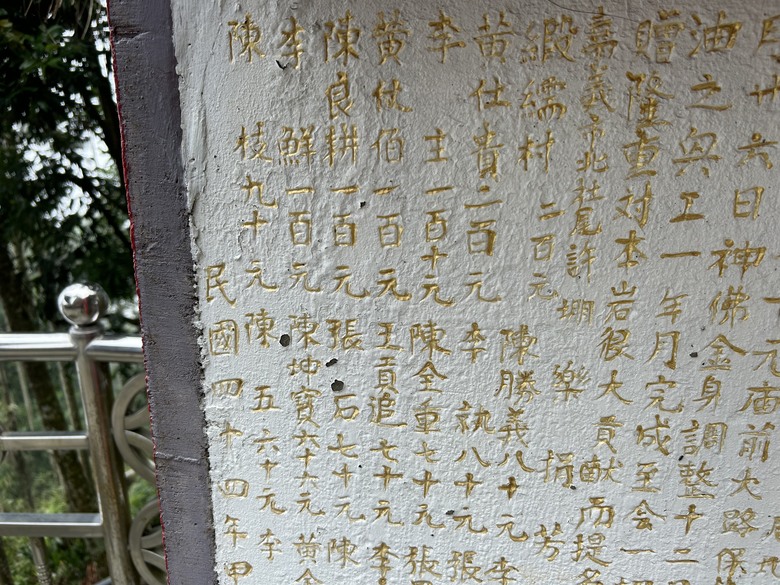 月廿六日神佛金身調整十二
油之與工一年月完成至會一
贈隆重對本岩很大貢献而提
嘉義市北社尾許堋樂捐芳
緞繻村二百元陳勝義八十元李
黃仕貴二百元李執八十元張
李主一百十元陳全重七十元張
黃伏伯一百元王貢追七十元李
陳良耕一百元張石七十元陳
李鮮一百元陳坤寶六十六元黃
陳枝九十元陳五六十元李
民國四十四年甲